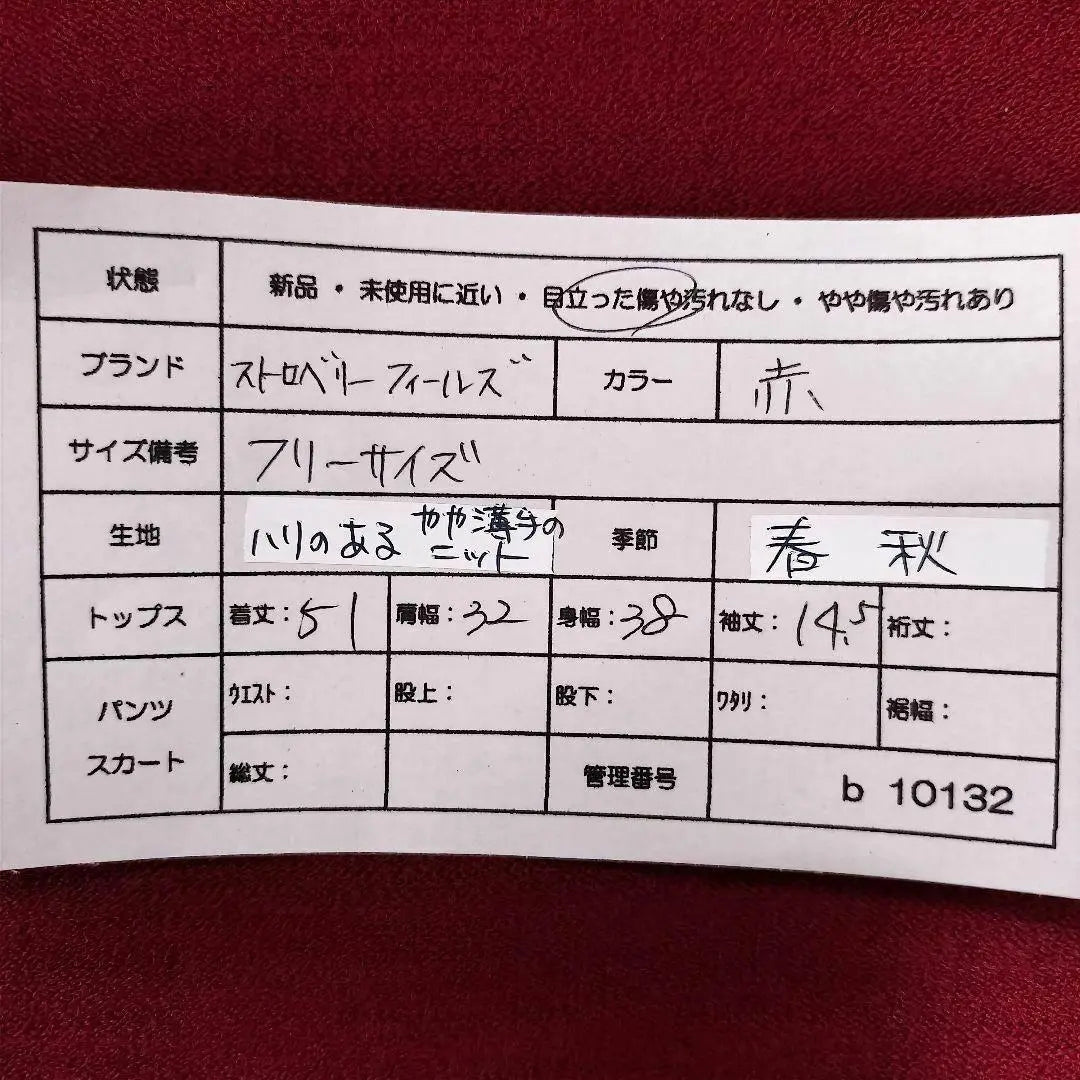 状態 新品・未使用に近い・目立った傷や汚れなし・やや傷や汚れあり
ブランド ストロベリーフィールズ カラー 赤
サイズ備考 フリーサイズ
生地 ハリのある やや薄手の ニット 季節 春 秋
トップス 着丈:51 肩幅:32 身幅:38 袖丈:14.5 裄丈:
パンツ スカート ウエスト: 股上: 股下: ワタリ: 裾幅:
総丈: 管理番号 b 10132